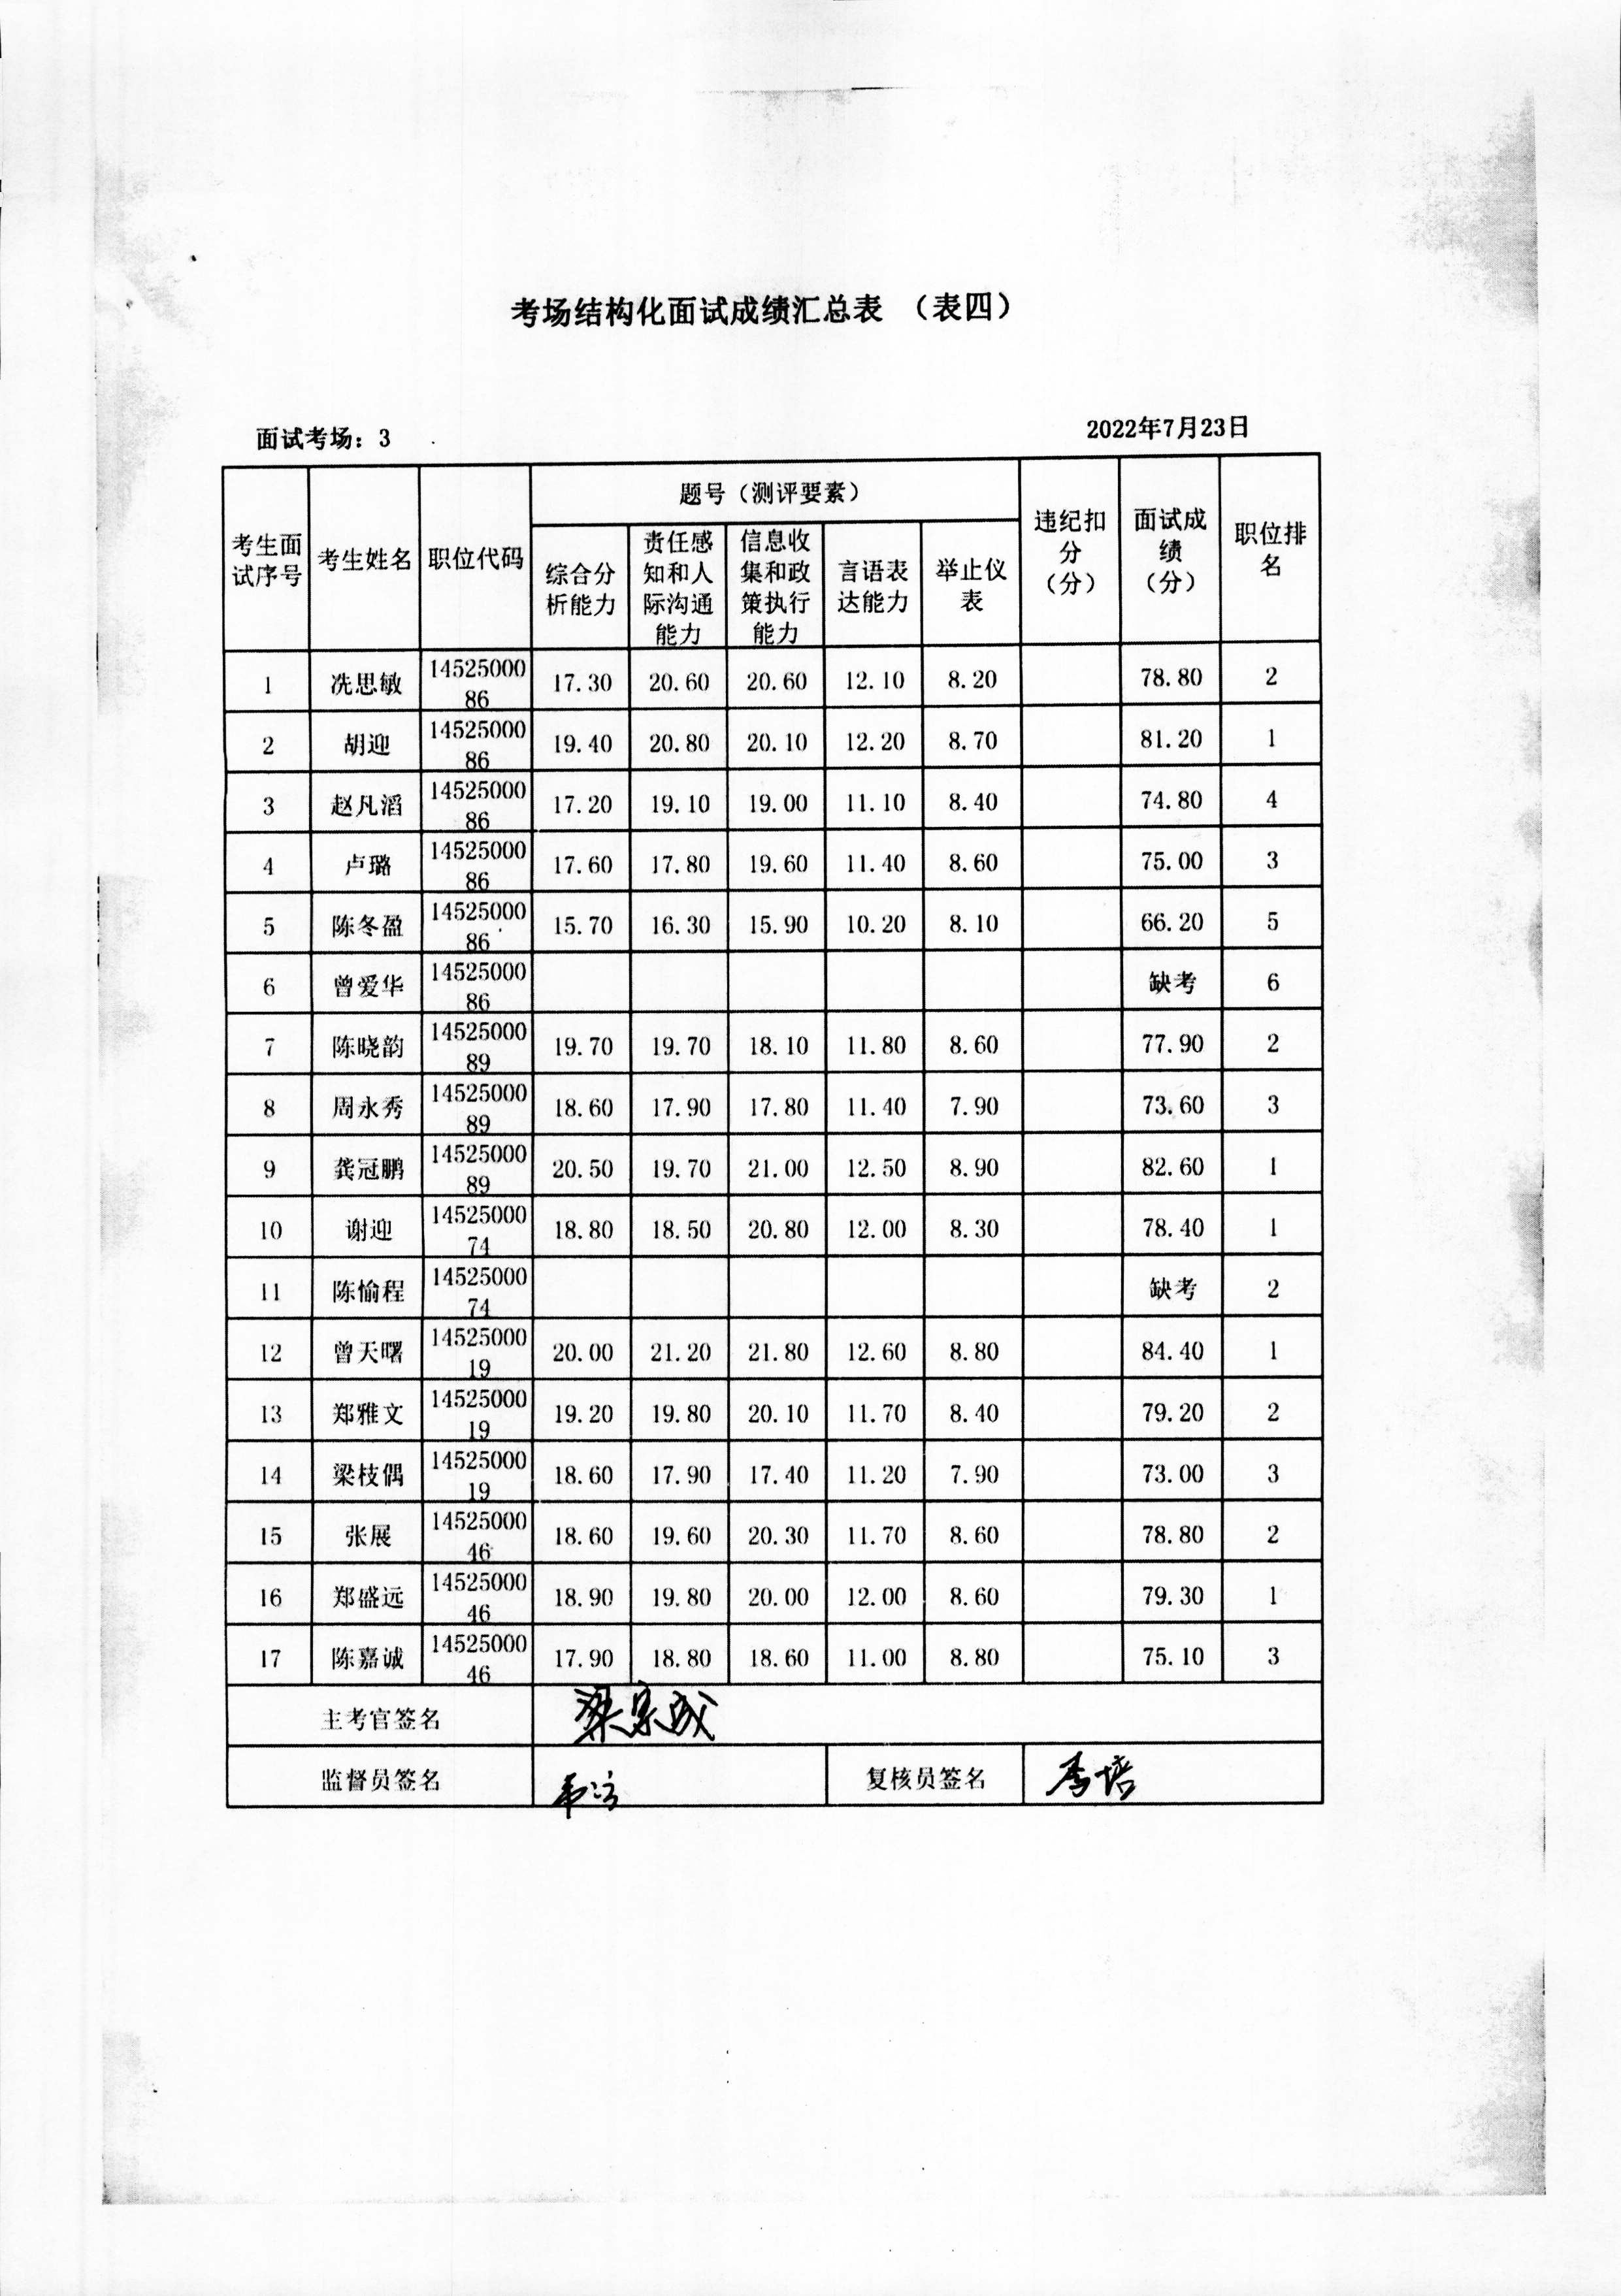 考场结构化面试成绩汇总表 （表四）
面试考场：3
2022年7月23日
考生面试序号 考生姓名 职位代码 题号（测评要素） 违纪扣分（分） 面试成绩（分） 职位排名
综合分析能力 责任感知和人际沟通能力 信息收集和政策执行能力 言语表达能力 举止仪表
1 冼思敏 1452500086 17.30 20.60 20.60 12.10 8.20 78.80 2
2 胡迎 1452500086 19.40 20.80 20.10 12.20 8.70 81.20 1
3 赵凡滔 1452500086 17.20 19.10 19.00 11.10 8.40 74.80 4
4 卢璐 1452500086 17.60 17.80 19.60 11.40 8.60 75.00 3
5 陈冬盈 1452500086 15.70 16.30 15.90 10.20 8.10 66.20 5
6 曾爱华 1452500086 缺考 6
7 陈晓韵 1452500089 19.70 19.70 18.10 11.80 8.60 77.90 2
8 周永秀 1452500089 18.60 17.90 17.80 11.40 7.90 73.60 3
9 龚冠鹏 1452500089 20.50 19.70 21.00 12.50 8.90 82.60 1
10 谢迎 1452500074 18.80 18.50 20.80 12.00 8.30 78.40 1
11 陈愉程 1452500074 缺考 2
12 曾天曙 1452500019 20.00 21.20 21.80 12.60 8.80 84.40 1
13 郑雅文 1452500019 19.20 19.80 20.10 11.70 8.40 79.20 2
14 梁枝偶 1452500019 18.60 17.90 17.40 11.20 7.90 73.00 3
15 张展 1452500046 18.60 19.60 20.30 11.70 8.60 78.80 2
16 郑盛远 1452500046 18.90 19.80 20.00 12.00 8.60 79.30 1
17 陈嘉诚 1452500046 17.90 18.80 18.60 11.00 8.80 75.10 3
主考官签名 梁宗成
监督员签名 复核员签名 李培